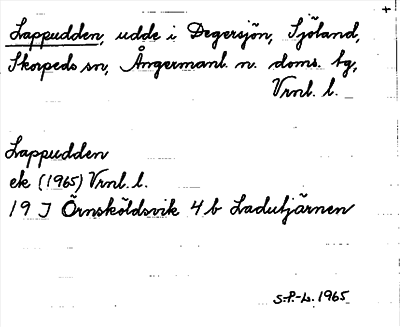 Lappudden, udde i Degersjön, Sjöland,
Skorpeds sn, Ångermanl. n. doms. bg,
Vrnl. l.
Lappudden
ek (1965) Vrnl. l.
19 J Örnsköldsvik 4 b Ladutjärnen
S.P.-L. 1965